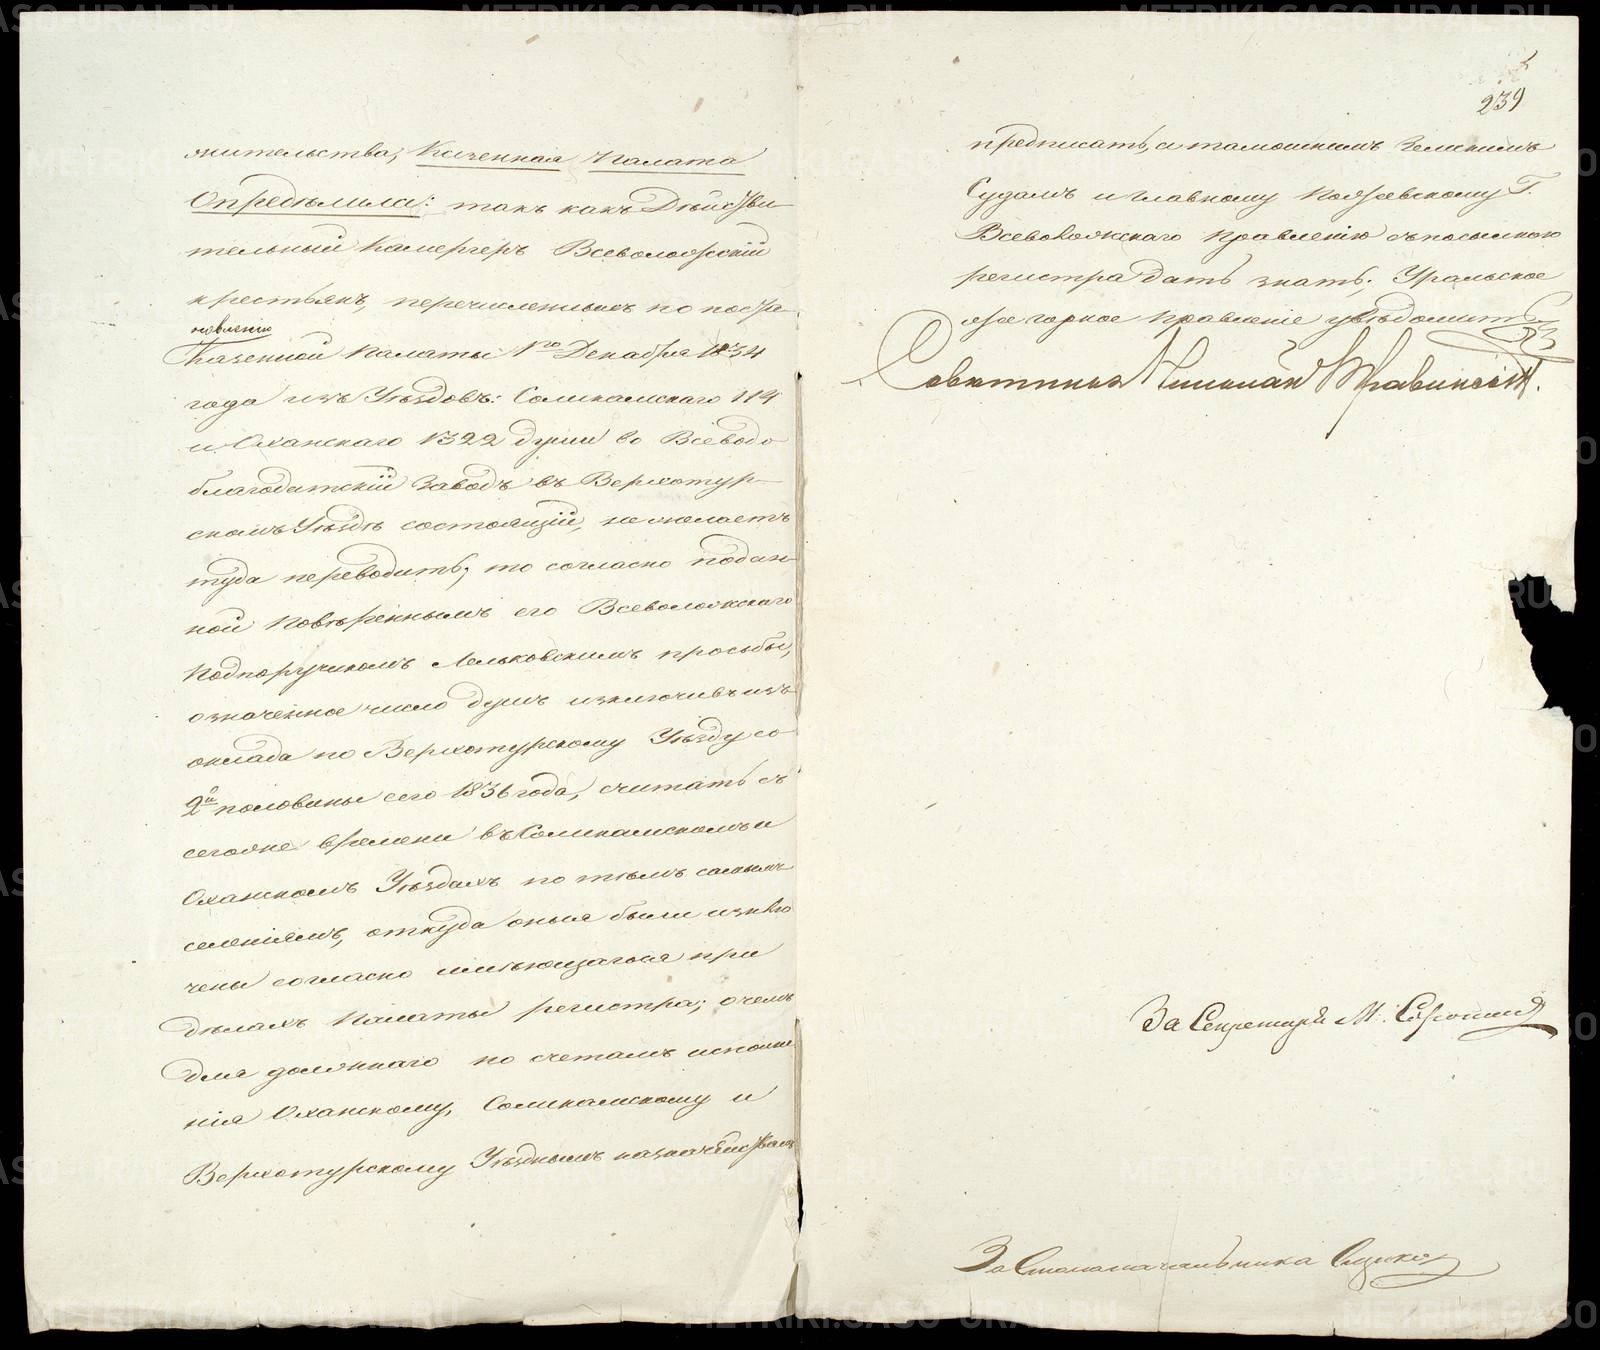 жительства; Казенная Палата
Определила: такъ какъ Дѣйстви-
тельный Камергеръ Всеволожскій
крестьянъ, перечисленныхъ по поста-
новленію
Казенной Палаты 1го Декабря 1834
года изъ Уѣздовъ: Соликамскаго 114
и Оханскаго 1322 души во Всеводо
благодатскій заводъ въ Верхотур-
скомъ Уѣздѣ состоящій, не желаетъ
туда переводить, то согласно подан-
ной повѣреннымъ его Всеволожскаго
Подпоручикомъ просьбы,
означенное число душъ изключивъ изъ
оклада по Верхотурскому Уѣзду со
2й половины сего 1836 года, считать съ
сегоже времени въ Соликамскомъ и
Оханскомъ Уѣздахъ по тѣмъ самымъ
селеніямъ, откуда оныя были изклю
чены согласно имѣющагося при
дѣлахъ Палаты регистра; о чемъ
для должнаго по счетамъ исполне
нія Оханскому, Соликамскому и
Верхотурскому Уѣзднымъ казначействамъ
239
предписать, а тамошнимъ Земскимъ
Судамъ и главному Пожевскому Г.
Всеволожскаго правленію съ посылкою
регистра дать знать, Уральское
же горное правленіе увѣдомить.
Совѣтникъ
За Секретаря М.
За Столоначальника
METRIKI.GASO-URAL.RU